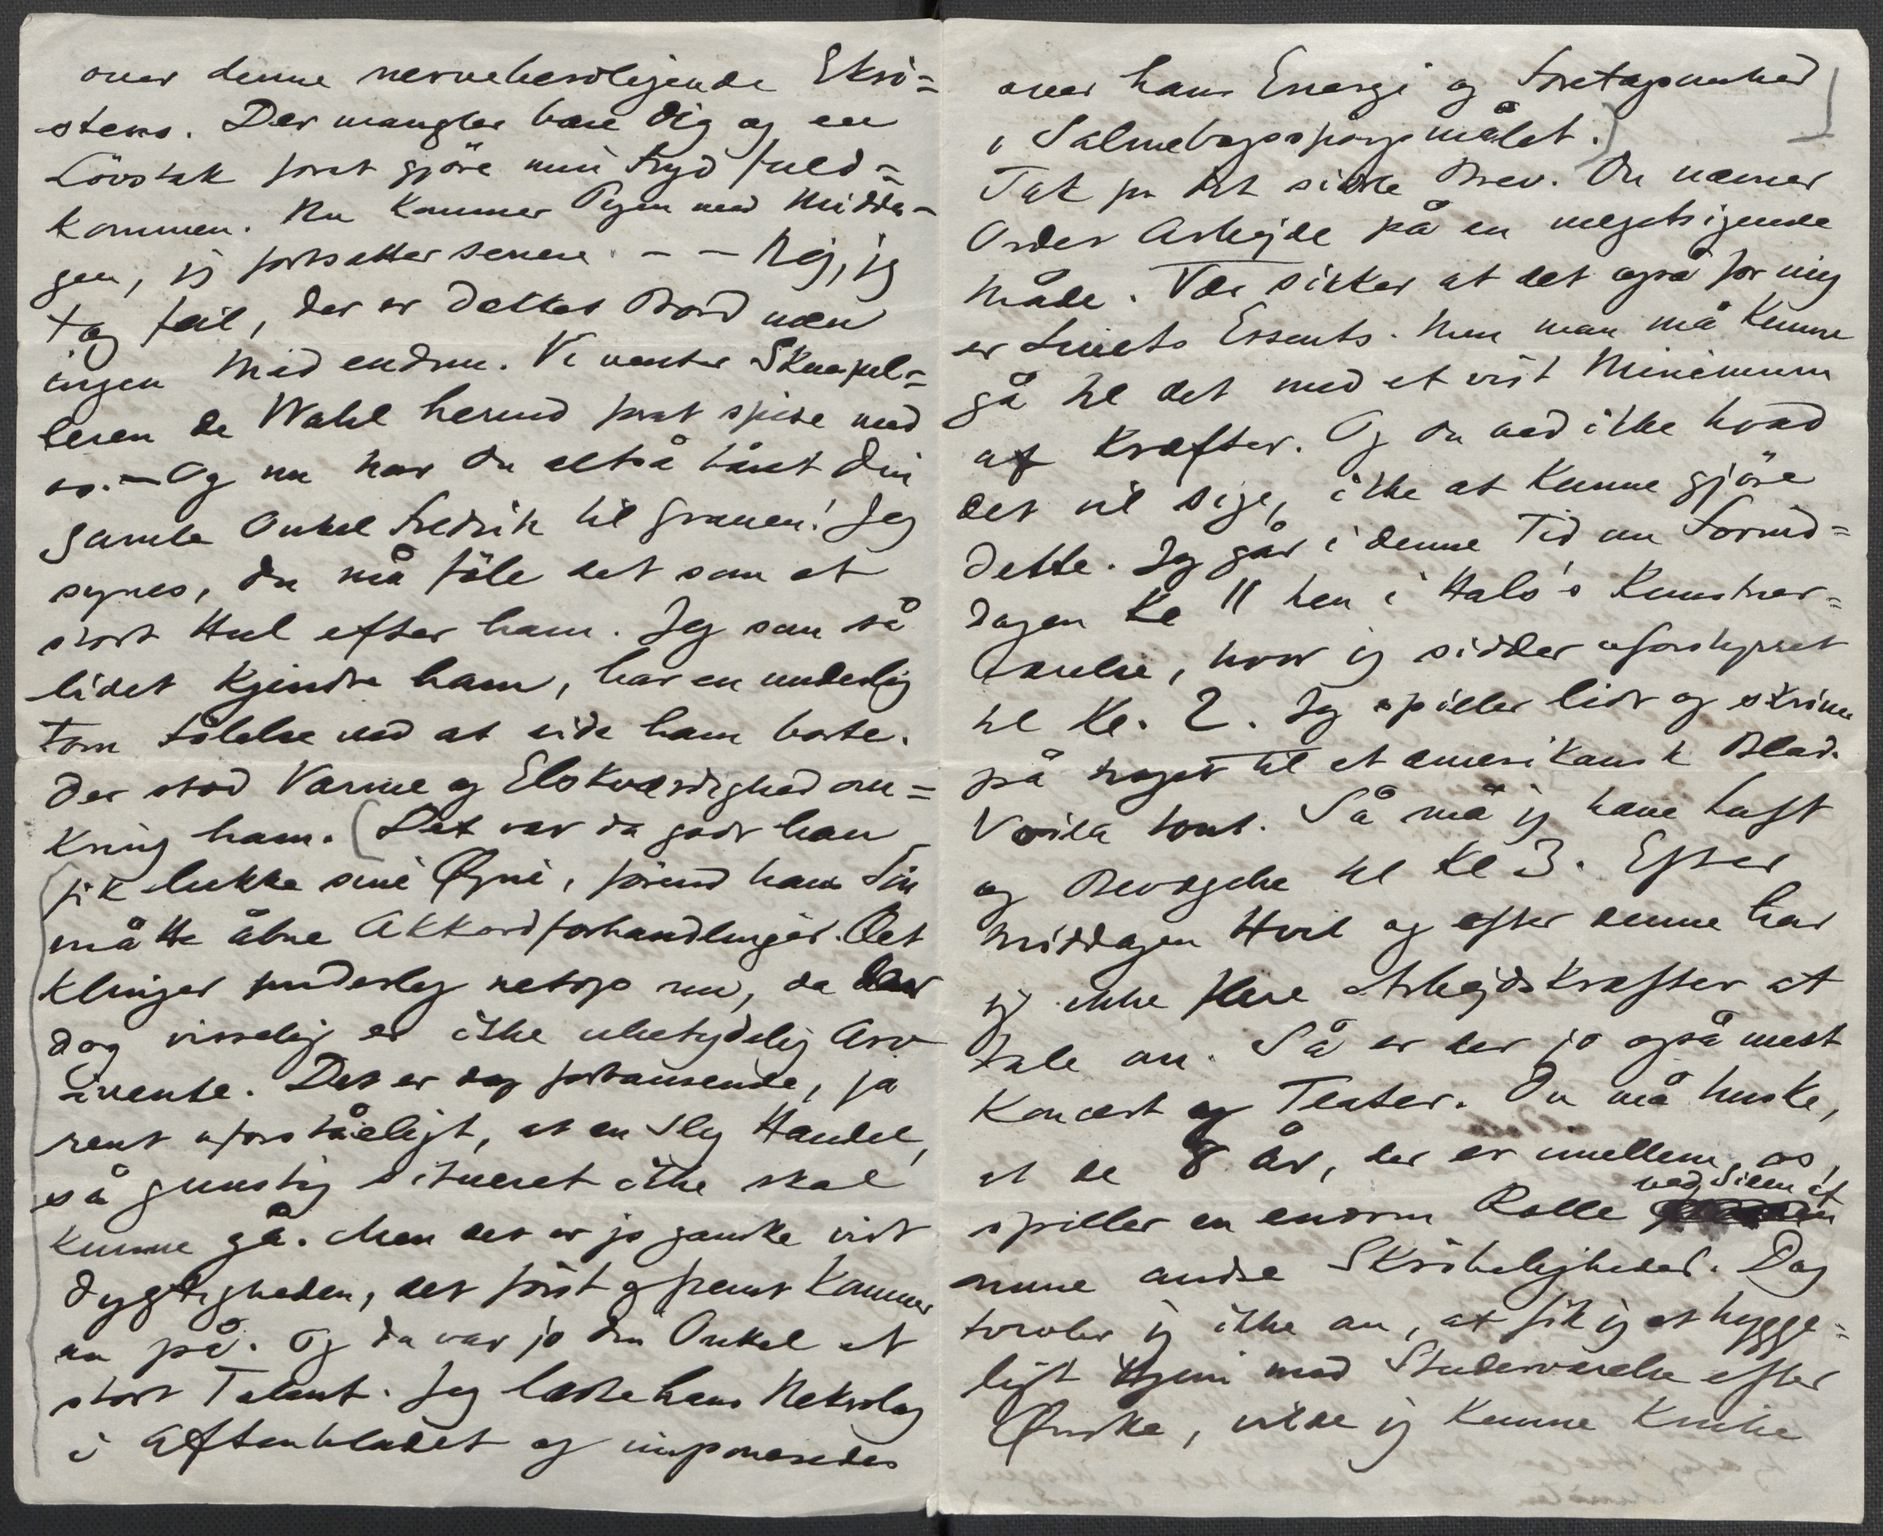 over denne nerveberoligende Eksi=
stens. Der mangler bare Dig og en
Lövstak forat gjöre min Fryd fuld=
kommen. Nu kommer Pigen med Midda-
gen, jeg fortsætter senere. – – Nej, jeg
tog feil, der er dækket Bord men
ingen Mad endnu. Vi venter Skuespil=
leren de Wahl herind forat spise med
os. – Og nu har Du altså båret Din
gamle Onkel Fredrik til Graven! Jeg
synes, Du må föle det som et
stort Hul efter ham. Jeg som så
lidet kjendte ham, har en underlig
tom Fölelse ved at vide ham borte.
Der stod Varme og Elskværdighed om=
kring ham. (Det var da godt han
fik lukke sine Øyne, förend hans Sön
måtte åbne Akkordforhandlinger. Det
klinger underlig netop nu, da der
dog visselig er ikke ubetydelig Arv
ivente. Det er dog forbausende, ja
rent uforståeligt, at en slig Handel,
så gunstig situeret ikke skal
kunne gå. Men det er jo ganske vist
Dygtigheden, det först og fremst kommer
an på. Og da var jo Din Onkel et
stort Talent. Jeg læste hans Nekrolog
i Aftenbladet og imponeredes
over hans Energi og Foretagsomhed
i Salmebogsspörgsmålet.)
Tak for Dit sidste Brev. Du nævner
Ordet Arbejde på en megetsigende
Måde. Vær sikker at det også for mig
er Livets Essents. Men man må kunne
gå til det med et vist Minimum
af Kræfter. Og Du ved ikke hvad
det vil sige, ikke at kunne gjöre
dette. Jeg går i denne Tid om Formid=
dagen Kl 11 hen i Hals's Kunstner=
værelse, hvor jeg sidder uforstyrret
til Kl. 2. Jeg spiller lidt og skriver
på noget til et amerikansk Blad.
Voila tout. Så må jeg have Luft
og Bevægelse til Kl 3. Efter
Middagen Hvil og efter denne har
jeg ikke flere Arbejdskræfter at
tale om. Så er der jo også mest
Koncert og Teater. Du må huske,
at de 8 År, der er imellem os,
spiller en enorm Rolle ved Siden af
mine andre Skröbeligheder. Dog
tvivler jeg ikke om, at fik jeg et hygge=
ligt Hjem med Studerværelse efter
Ønske, vilde jeg kunne